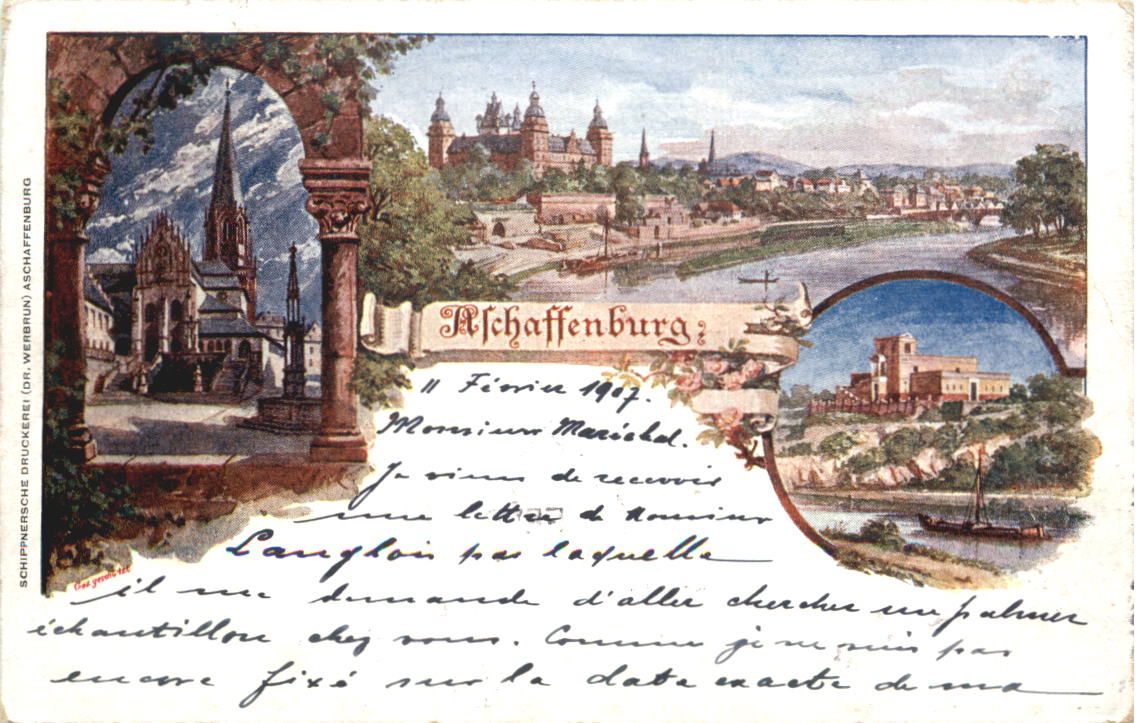 SCHIPPNERSCHE DRUCKEREI (DR. WERBRUN) ASCHAFFENBURG
Aschaffenburg:
11 Février 1907.
Monsieur Maréchal.
Je viens de recevoir
une lettre de Monsieur
Langlois par laquelle
il me demande d'aller chercher un
échantillon chez vous. Comme je ne suis pas
encore fixé sur la date exacte de ma
Ges. geschützt